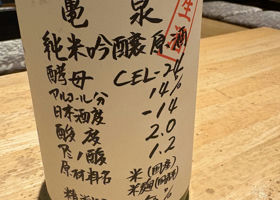 亀泉
生酒
純米吟醸原酒
酵母 CEL-24
アルコール分 14%
日本酒度 -14
酸度 2.0
アミノ酸 1.2
原材料名 米(国産)
米麹(国産米)
精米
%